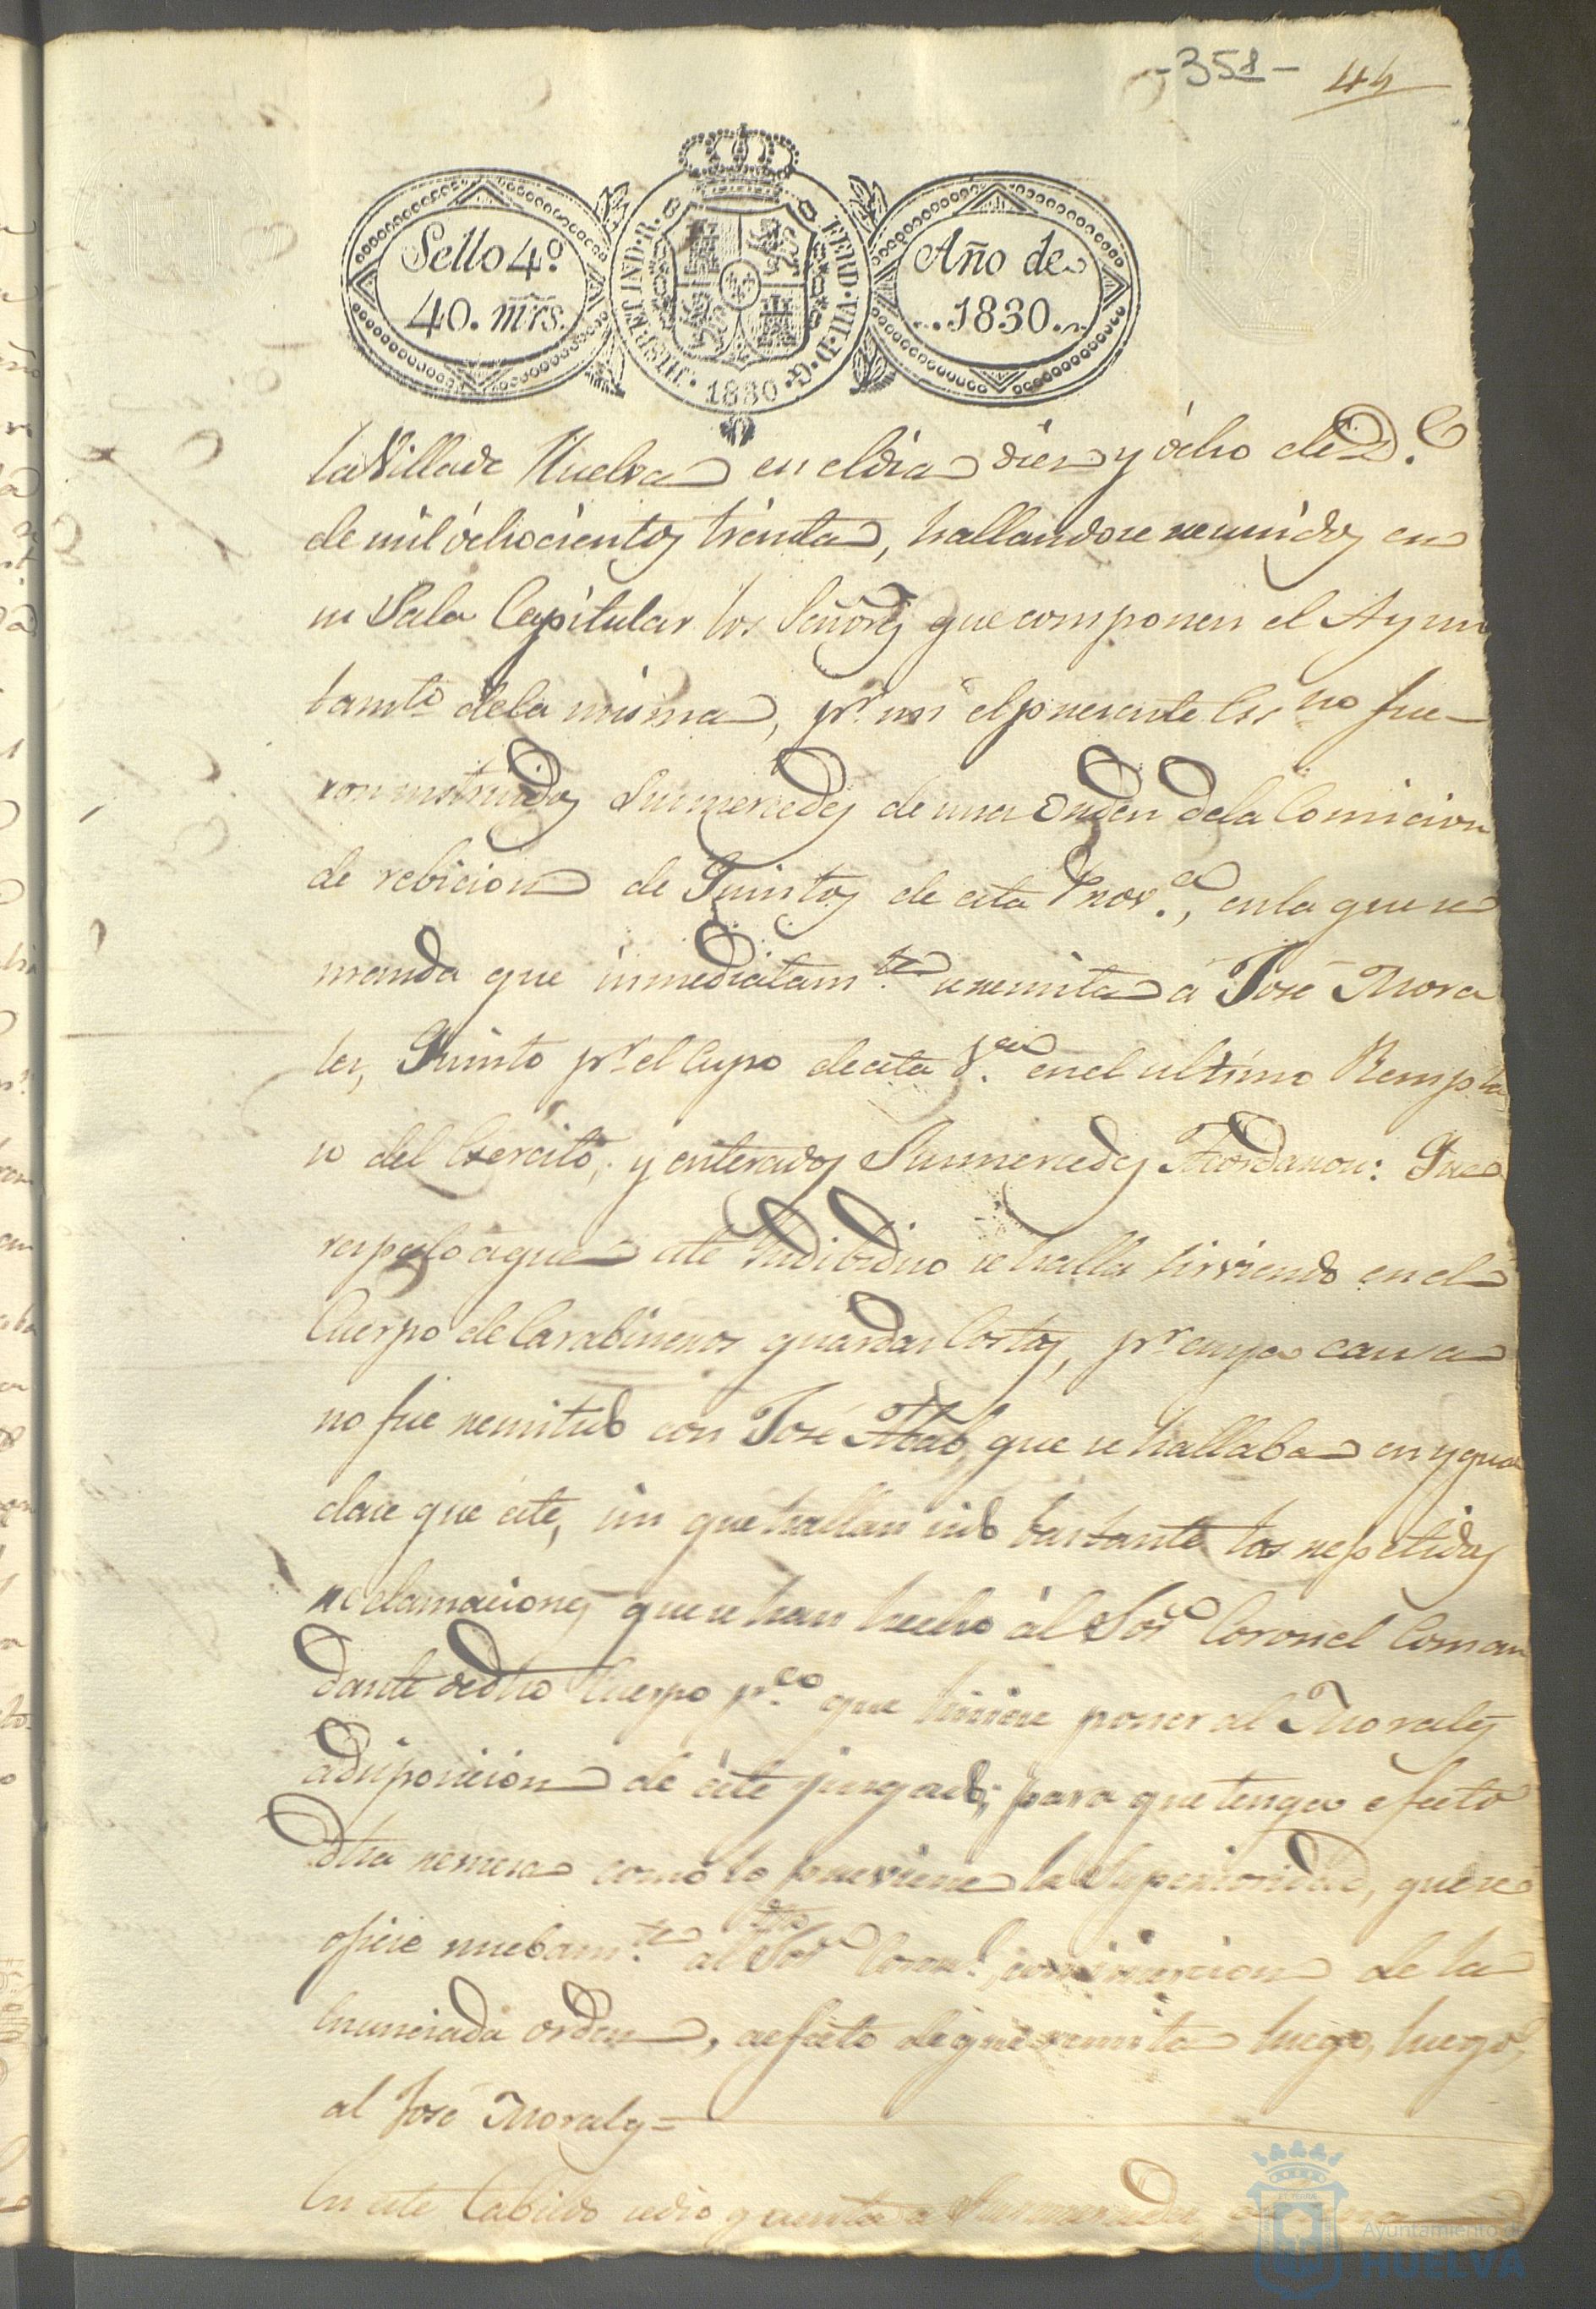 -358-
44
Sello 4º
40. mrs.
HISP. ET IND. R.
FERD. VII. D. G.
1830
Año de
1830.
la Villa de Huelva en el dia diez y ócho de D.e
de mil ochocientos treinta, hallandose reunidos en
su Sala Capitular los Señores que componen el Ayun
tamto. de la misma, pr. mi el presente Essno fue-
ron instruidos Sumercedes de una Orden dela Comicion
de rebicion de Quintos de esta Prova., en la que se
manda que inmediatamte. se remita á José Mora
les, Quinto pr. el Cupo de esta Va. en el ultimo Rempla
so del Exercito; y enterados Sumercedes Acordaron: Que
respecto a que este Indibiduo se halla sirviendo en el
Cuerpo de Carabineros guardas Costas, pr. cuya causa
no fue remitido con José Abad, que se hallaba en ygual
clase que éste, sin que hallan sido bastante las repetidas
reclamaciones que se han hecho ál Sor. Coronel Coman
dante de dho Cuerpo pa. que hiciese poner al Morales
a disposicion de éste juzgado; para que tenga efecto
dha remesa como lo previene la Superioridad, que se
oficie nuebamte. al dho Sor. Coronl., con insercion de la
Enunciada orden, aefecto de que remita luego, luego,
al José Morales=
En este Cabildo se dio quenta a Sumercedes
Ayuntamiento de
HUELVA